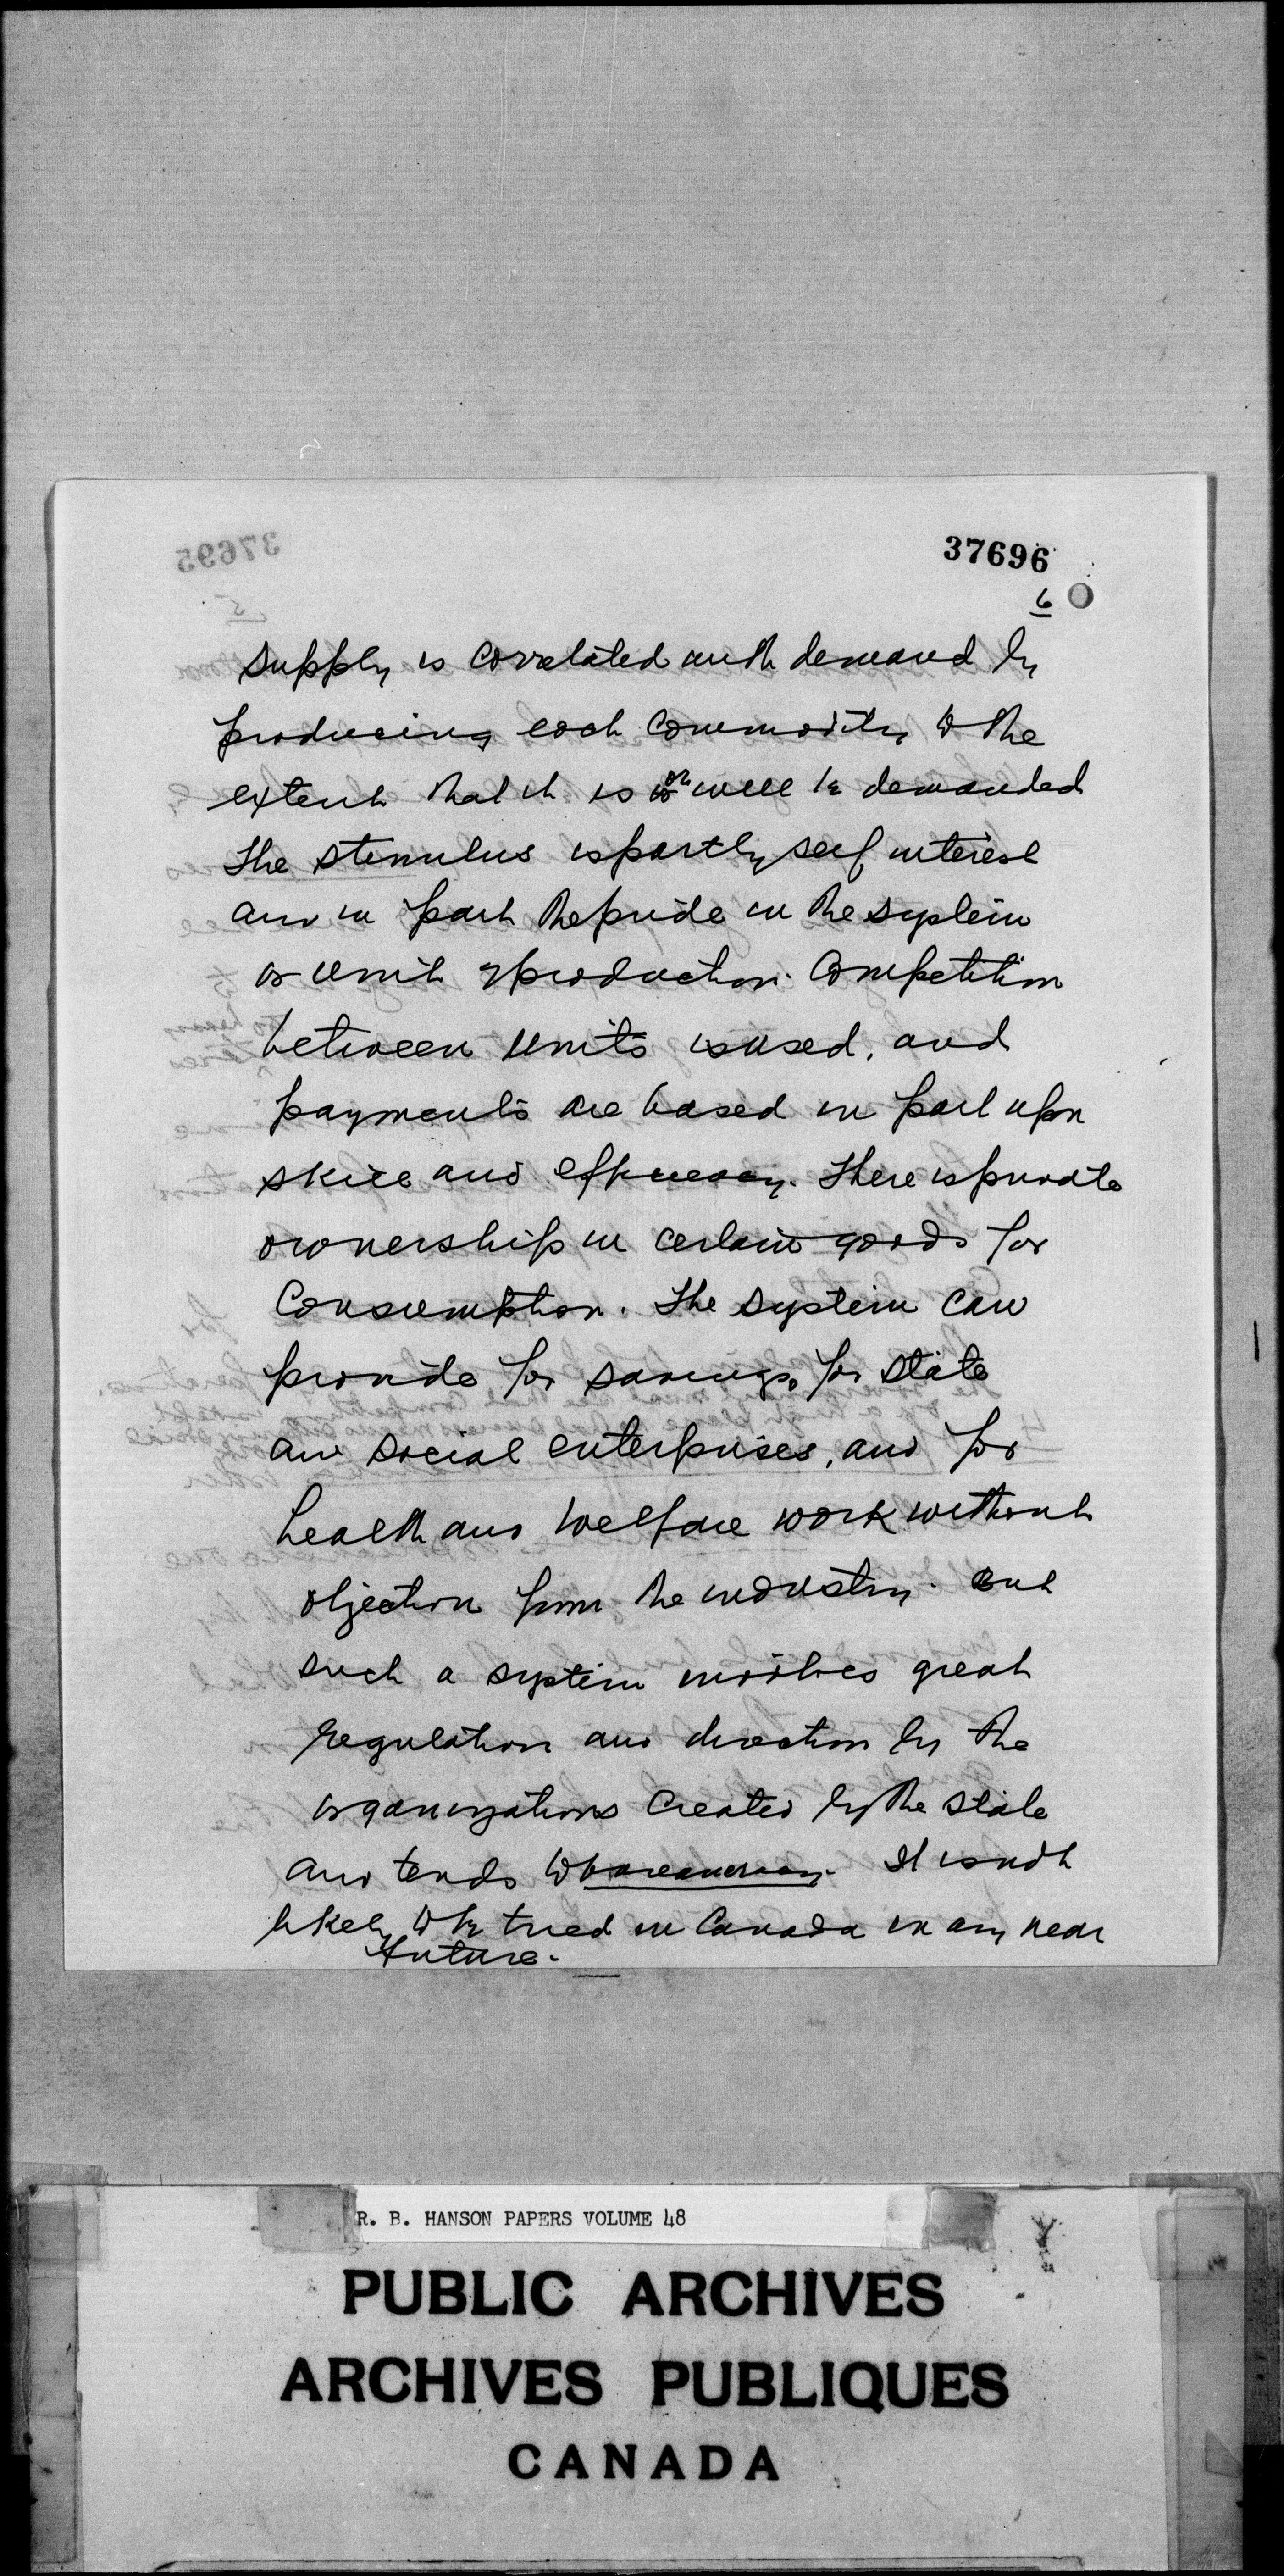 37696
37695
6
5
supply is correlated with demand by
producing each commodity to the
extent that it is or will be demanded
The stimulus is partly self interest
and in part the pride in the system
or unit of production. Competition
between units is used, and
payments are based in part upon
skill and efficiency. There is private
ownership in certain goods for
Consumption. The system can
provide for savings, for state
and social enterprises, and for
health and welfare work without
objection from the industry. But
such a system involves great
regulation and direction by the
organizations created by the state
and tends to bureaucracy. It is not
likely to be tried in Canada in any near
future.
R. B. HANSON PAPERS VOLUME 48
PUBLIC ARCHIVES
ARCHIVES PUBLIQUES
CANADA